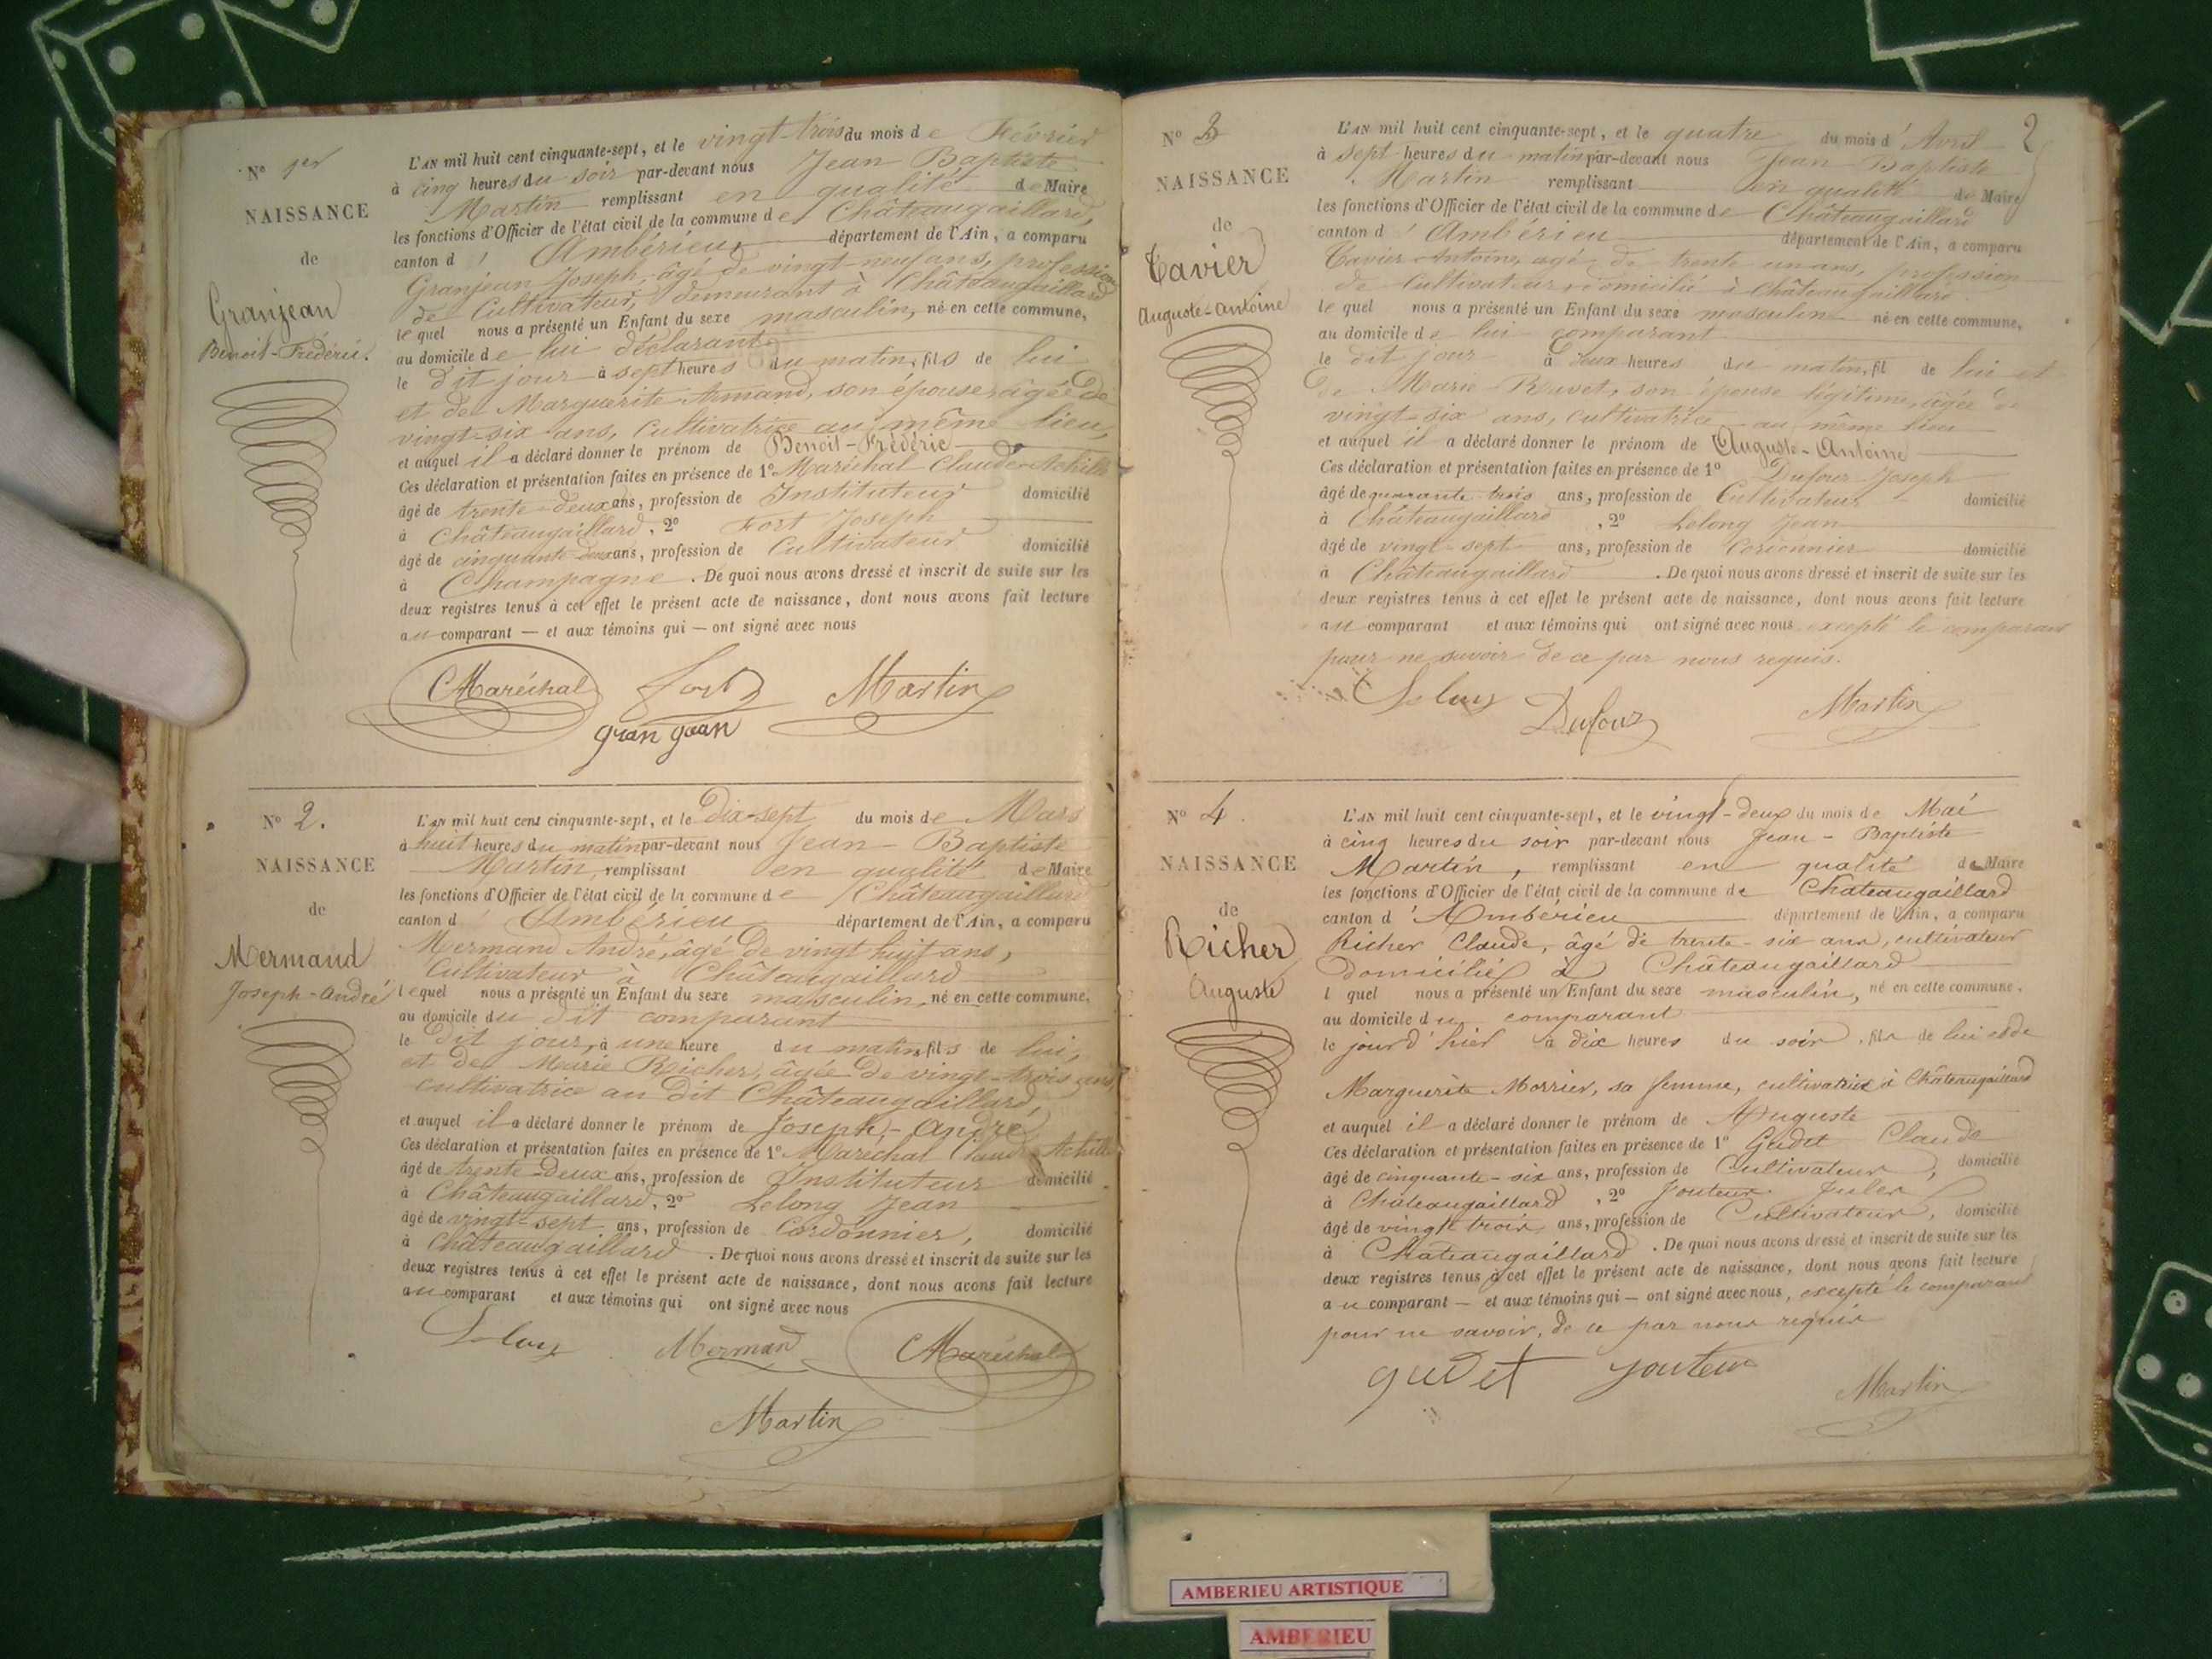 N° 1er
NAISSANCE
de
Granjean
Benoit-Frédéric.
L'AN mil huit cent cinquante-sept, et le vingt-trois du mois de Février
à cinq heures du soir par-devant nous Jean Baptiste
Martin remplissant en qualité de Maire
les fonctions d'Officier de l'état civil de la commune de Châteaugaillard,
canton d'Ambérieu département de l'Ain, a comparu
Granjean Joseph, âgé de vingt-neuf ans, profession
de Cultivateur, demeurant à Châteaugaillard
lequel nous a présenté un Enfant du sexe masculin, né en cette commune,
au domicile de lui déclarant
le dit jour à sept heures du matin, fils de lui
et de Marguerite Armand, son épouse âgée de
vingt-six ans, Cultivatrice au même lieu,
et auquel il a déclaré donner le prénom de Benoit-Frédéric
Ces déclaration et présentation faites en présence de 1° Maréchal Claude Achille
âgé de trente-deux ans, profession de Instituteur domicilié
à Châteaugaillard, 2° Fort Joseph
âgé de cinquante deux ans, profession de Cultivateur domicilié
à Champagne. De quoi nous avons dressé et inscrit de suite sur les
deux registres tenus à cet effet le présent acte de naissance, dont nous avons fait lecture
au comparant — et aux témoins qui — ont signé avec nous
Maréchal Fort Martin
gran gean
N° 2.
NAISSANCE
de
Mermand
Joseph-André
L'AN mil huit cent cinquante-sept, et le Dix-sept du mois de Mars
à huit heures du matin par-devant nous Jean Baptiste
Martin, remplissant en qualité de Maire
les fonctions d'Officier de l'état civil de la commune de Châteaugaillard
canton d'Ambérieu département de l'Ain, a comparu
Mermand André, âgé de vingt huit ans,
Cultivateur à Châteaugaillard
lequel nous a présenté un Enfant du sexe masculin, né en cette commune,
au domicile du dit comparant
le dit jour, à une heure du matin fils de lui,
et de Marie Richer, âgée de vingt-trois ans
cultivatrice au dit Châteaugaillard,
et auquel il a déclaré donner le prénom de Joseph-André
Ces déclaration et présentation faites en présence de 1° Maréchal Claude Achille
âgé de trente Deux ans, profession de Instituteur domicilié
à Châteaugaillard, 2° Lelong Jean
âgé de vingt-sept ans, profession de Cordonnier, domicilié
à Châteaugaillard. De quoi nous avons dressé et inscrit de suite sur les
deux registres tenus à cet effet le présent acte de naissance, dont nous avons fait lecture
au comparant et aux témoins qui ont signé avec nous
Lelong Mermand Maréchal
Martin
2
N° 3
NAISSANCE
de
Tavier
Auguste-Antoine
L'AN mil huit cent cinquante-sept, et le quatre du mois d'Avril
à sept heures du matin par-devant nous Jean Baptiste
Martin remplissant en qualité de Maire
les fonctions d'Officier de l'état civil de la commune de Châteaugaillard
canton d'Ambérieu département de l'Ain, a comparu
Tavier Antoine, agé de trente un ans, profession
de Cultivateur domicilié à Châteaugaillard
lequel nous a présenté un Enfant du sexe masculin né en cette commune,
au domicile de lui comparant
le dit jour à deux heures du matin, fil de lui et
de Marie Ruvet, son épouse légitime, âgée de
vingt-six ans, cultivatrice au même lieu
et auquel il a déclaré donner le prénom de Auguste-Antoine
Ces déclaration et présentation faites en présence de 1° Dufour Joseph
âgé de quarante trois ans, profession de Cultivateur domicilié
à Châteaugaillard, 2° Lelong Jean
âgé de vingt-sept ans, profession de Cordonnier domicilié
à Châteaugaillard. De quoi nous avons dressé et inscrit de suite sur les
deux registres tenus à cet effet le présent acte de naissance, dont nous avons fait lecture
au comparant et aux témoins qui ont signé avec nous excepté le comparant
pour ne savoir de ce par nous requis.
Lelong Dufour Martin
N° 4.
NAISSANCE
de
Richer
Auguste
L'AN mil huit cent cinquante-sept, et le vingt-deux du mois de Mai
à cinq heures du soir par-devant nous Jean-Baptiste
Martin, remplissant en qualité de Maire
les fonctions d'Officier de l'état civil de la commune de Châteaugaillard
canton d'Ambérieu département de l'Ain, a comparu
Richer Claude, âgé de trente-six ans, cultivateur
domicilié à Châteaugaillard
l quel nous a présenté un Enfant du sexe masculin, né en cette commune,
au domicile du comparant
le jour d'hier à dix heures du soir, fils de lui et de
Marguerite Morrier, sa femme, cultivatrice à Châteaugaillard
et auquel il a déclaré donner le prénom de Auguste
Ces déclaration et présentation faites en présence de 1° Gudet Claude
âgé de cinquante-six ans, profession de Cultivateur, domicilié
à Châteaugaillard, 2° Jouteur Jules
âgé de vingt trois ans, profession de Cultivateur, domicilié
à Châteaugaillard. De quoi nous avons dressé et inscrit de suite sur les
deux registres tenus à cet effet le présent acte de naissance, dont nous avons fait lecture
au comparant — et aux témoins qui — ont signé avec nous, excepté le comparant
pour ne savoir, de ce par nous requis
gudet Jouteur Martin
AMBERIEU ARTISTIQUE
AMBERIEU